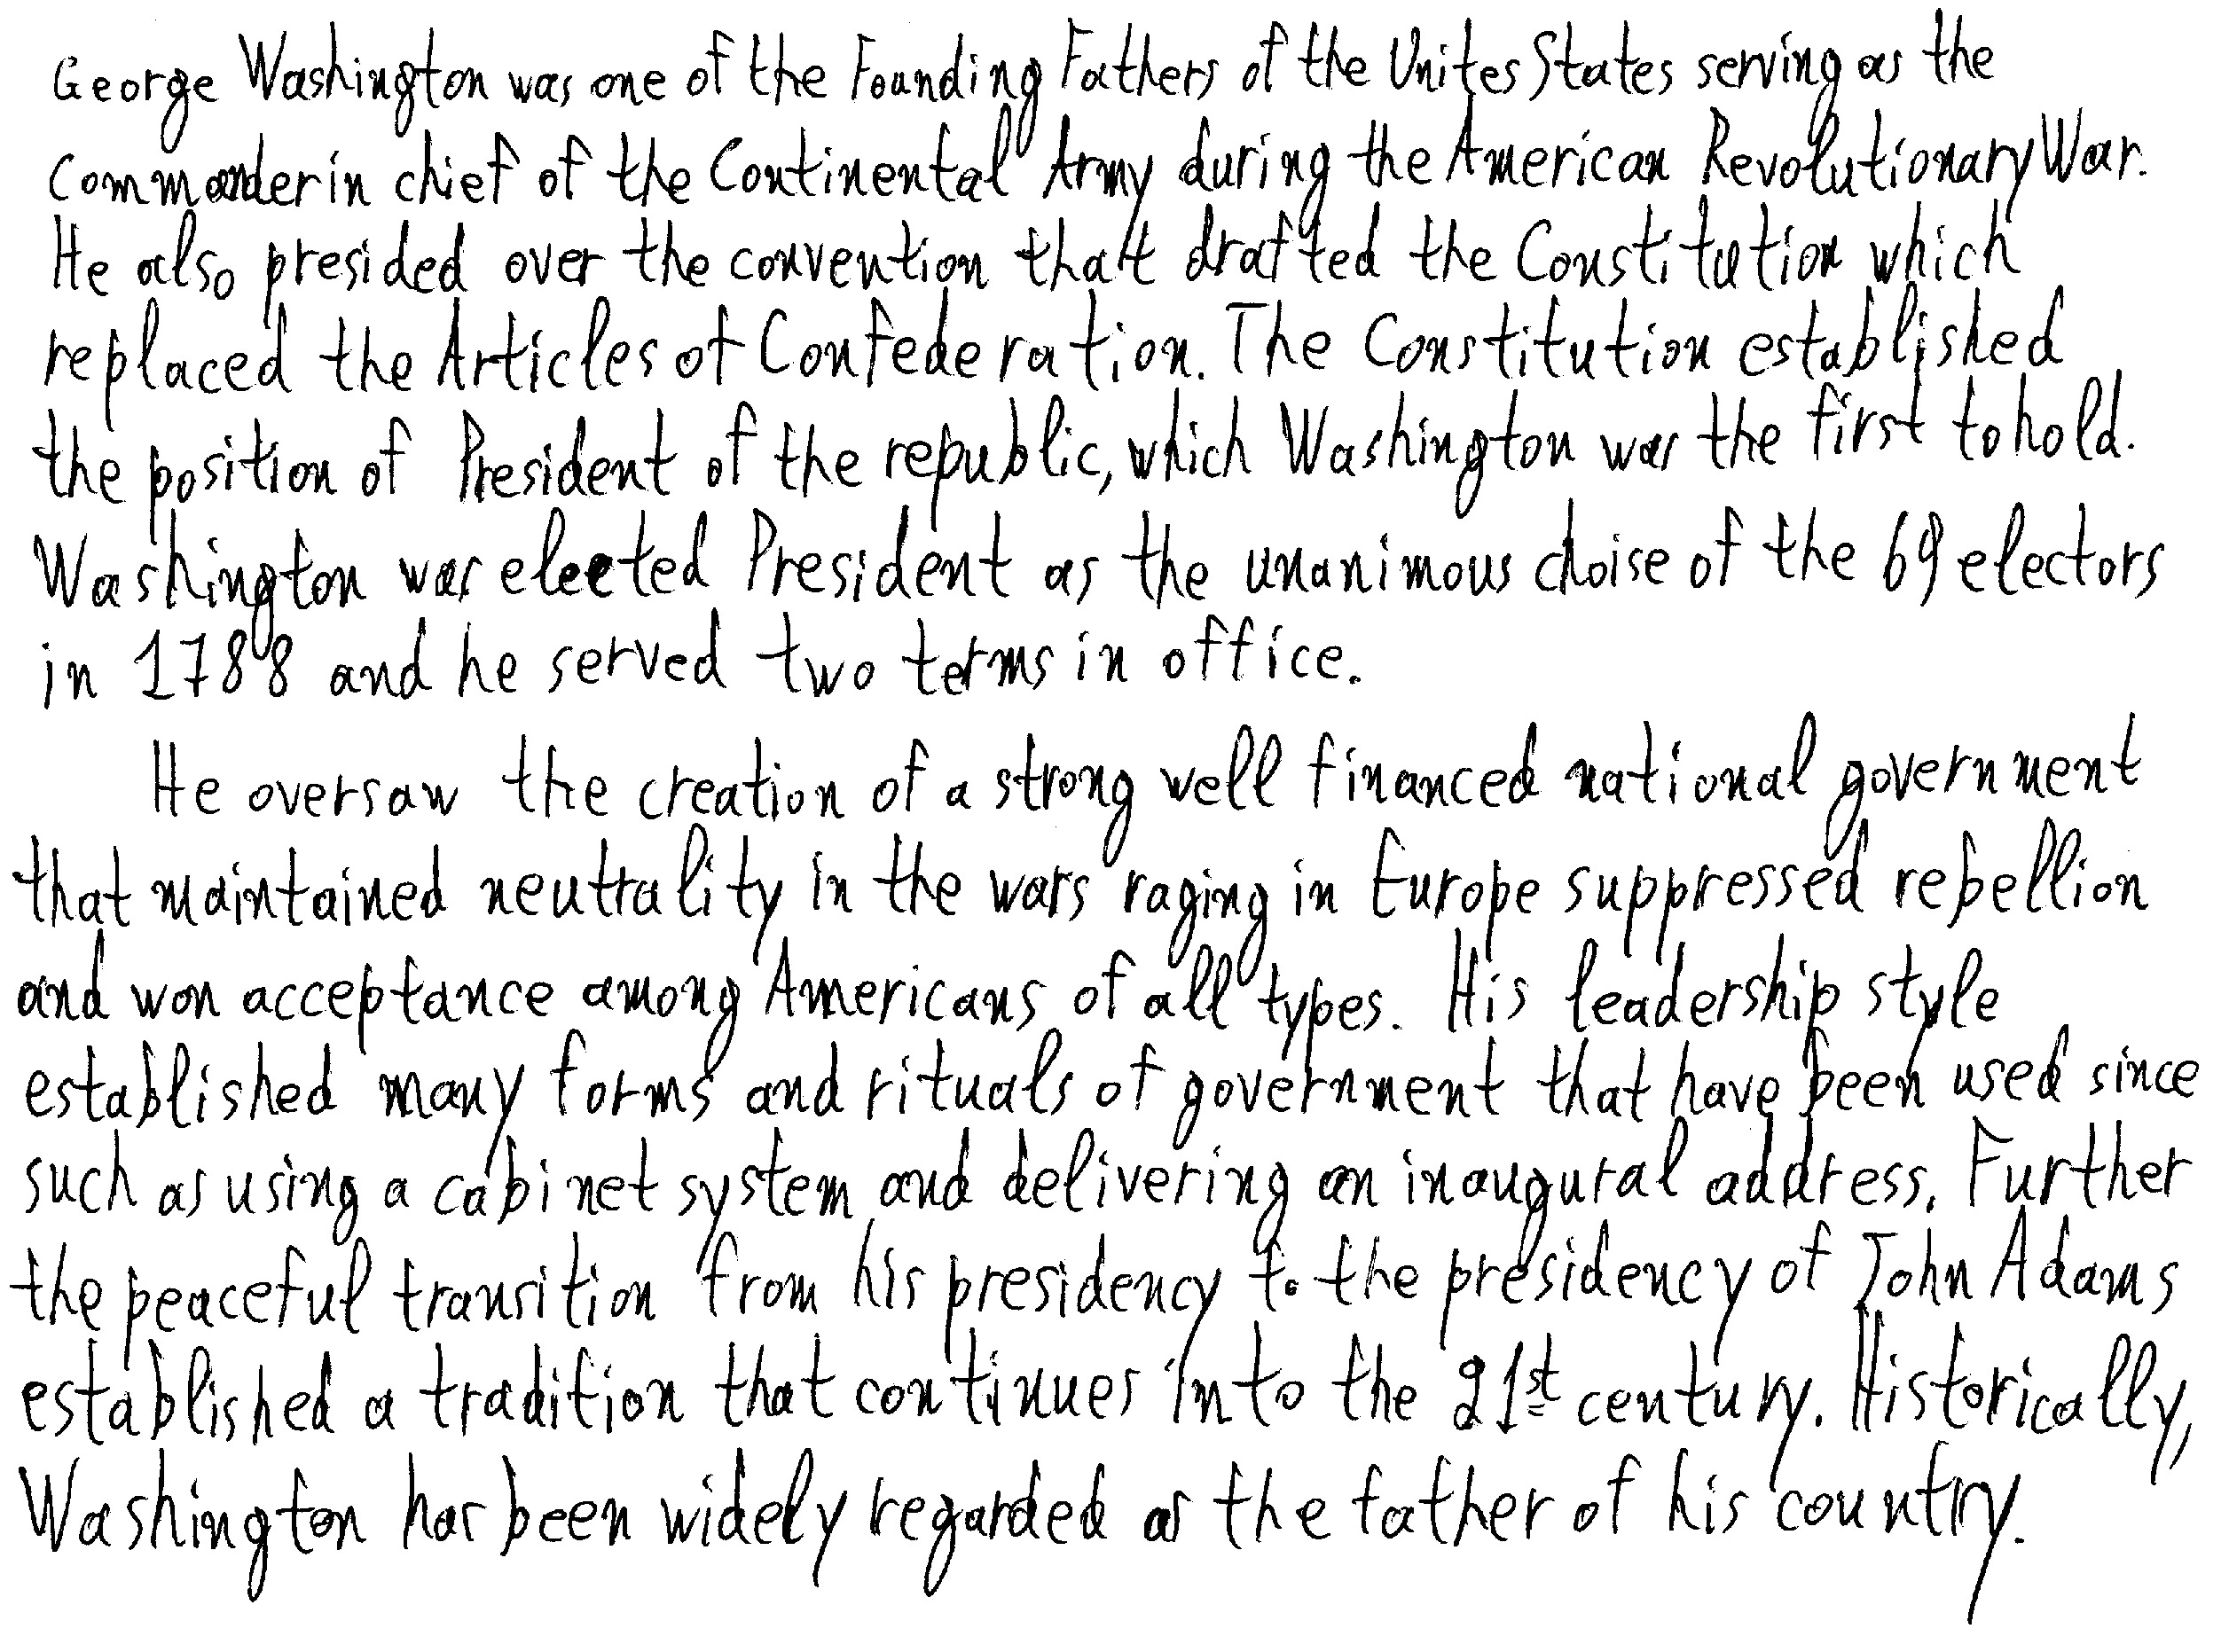 George Washington was one of the Founding Fathers of the Unites States serving as the
Commander in chief of the Continental Army during the American Revolutionary War.
He also presided over the convention thatt drafted the Constitution which
replaced the Articles of Confederation. The Constitution established
the position of President of the republic, which Washington was the first to hold.
Washington was elected President as the unanimous choise of the 69 electors
in 1788 and he served two terms in office.
He oversaw the creation of a strong well financed national government
that maintained neutrality in the wars raging in Europe suppressed rebellion
and won acceptance among Americans of all types. His leadership style
established many forms and rituals of government that have been used since
such as using a cabinet system and delivering an inaugural address. Further
the peaceful transition from his presidency to the presidency of John Adams
established a tradition that continues into the 21st century. Historically,
Washington has been widely regarded as the father of his country.